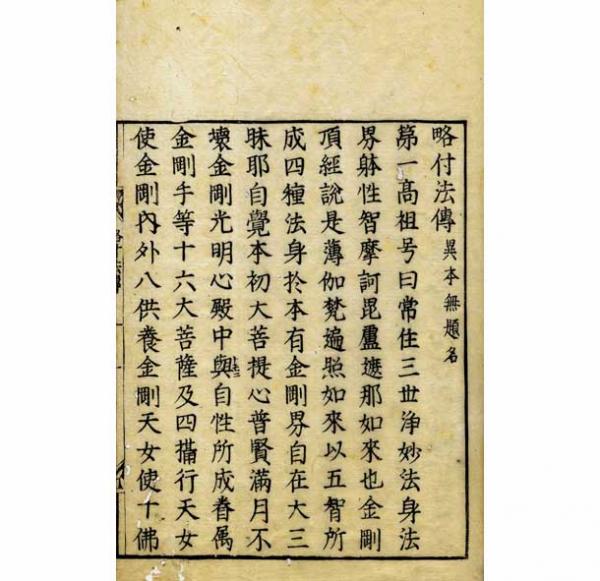 略付法傳異本無題名
第一髙祖号曰常住三世浄妙法身法
界躰性智摩訶毘盧遮那如來也金剛
頂經說是薄伽梵遍照如來以五智所
成四種法身於本有金剛界自在大三
昧耶自覺本初大菩提心普賢滿月不
壞金剛光明心殿中與自性所成眷属
金剛手等十六大菩薩及四攝行天女
使金剛内外八供養金剛天女使十佛